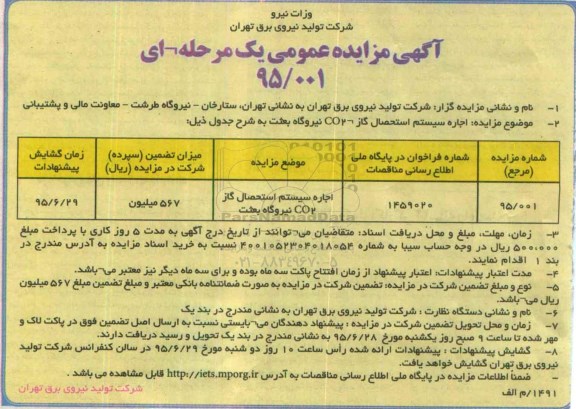 وزات نیرو
شرکت تولید نیروی برق تهران
آگهی مزایده عمومی یک مرحله¬ای
۹۵/۰۰۱
۱- نام و نشانی مزایده گزار: شرکت تولید نیروی برق تهران به نشانی تهران، ستارخان - نیروگاه طرشت - معاونت مالی و پشتیبانی
۲- موضوع مزایده: اجاره سیستم استحصال گاز ¬CO۲ نیروگاه بعثت به شرح جدول ذیل:
شماره مزایده (مرجع)
شماره فراخوان در پایگاه ملی اطلاع رسانی مناقصات
موضع مزایده
میزان تضمین (سپرده) شرکت در مزایده (ریال)
زمان گشایش پیشنهادات
۹۵/۰۰۱
۱۴۵۹۰۲۰
اجاره سیستم استحصال گاز CO۲ نیروگاه بعثت
۵۶۷ میلیون
۹۵/۶/۲۹
۳- زمان، مهلت، مبلغ و محل دریافت اسناد: متقاضیان می¬توانند از تاریخ درج آگهی به مدت ۵ روز کاری با پرداخت مبلغ
۵۰۰،۰۰۰ ریال در وجه حساب سیبا به شماره ۴۰۰۱۰۵۲۳۰۴۰۱۸۰۵۴ نسبت به خرید اسناد مزایده به آدرس مندرج در
بند ۱ اقدام نمایند.
۴- مدت اعتبار پیشنهادات: اعتبار پیشنهاد از زمان افتتاح پاکت سه ماه بوده و برای سه ماه دیگر نیز معتبر می¬باشد.
۵- نوع و مبلغ تضمین شرکت در مزایده: تضمین شرکت در مزایده به صورت ضمانتنامه بانکی معتبر و مبلغ تضمین مبلغ ۵۶۷ میلیون
ریال می¬باشد.
۶- نام و نشانی دستگاه نظارت : شرکت تولید نیروی برق تهران به نشانی مندرج در بند یک
۷- زمان و محل تحویل تضمین شرکت در مزایده : پیشنهاد دهندگان می¬بایستی نسبت به ارسال اصل تضمین فوق در پاکت لاک و
مهر شده تا ساعت ۹ صبح روز یکشنبه مورخ ۹۵/۶/۲۸ به نشانی مندرج در بند یک تحویل و رسید دریافت دارند.
۸- گشایش پیشنهادات : پیشنهادات ارائه شده رأس ساعت ۱۰ روز دو شنبه مورخ ۹۵/۶/۲۹ در سالن کنفرانس شرکت تولید
نیروی برق تهران گشایش خواهد یافت.
- ضمنا اطلاعات مزایده در پایگاه ملی اطلاع رسانی مناقصات به آدرس http://iets.mporg.ir قابل مشاهده می باشد .
۱۴۹۱/م الف
شرکت تولید نیروی برق تهران
ParsNamadData
۰۲۱-۸۸۳۴۹۶۷۰-۵